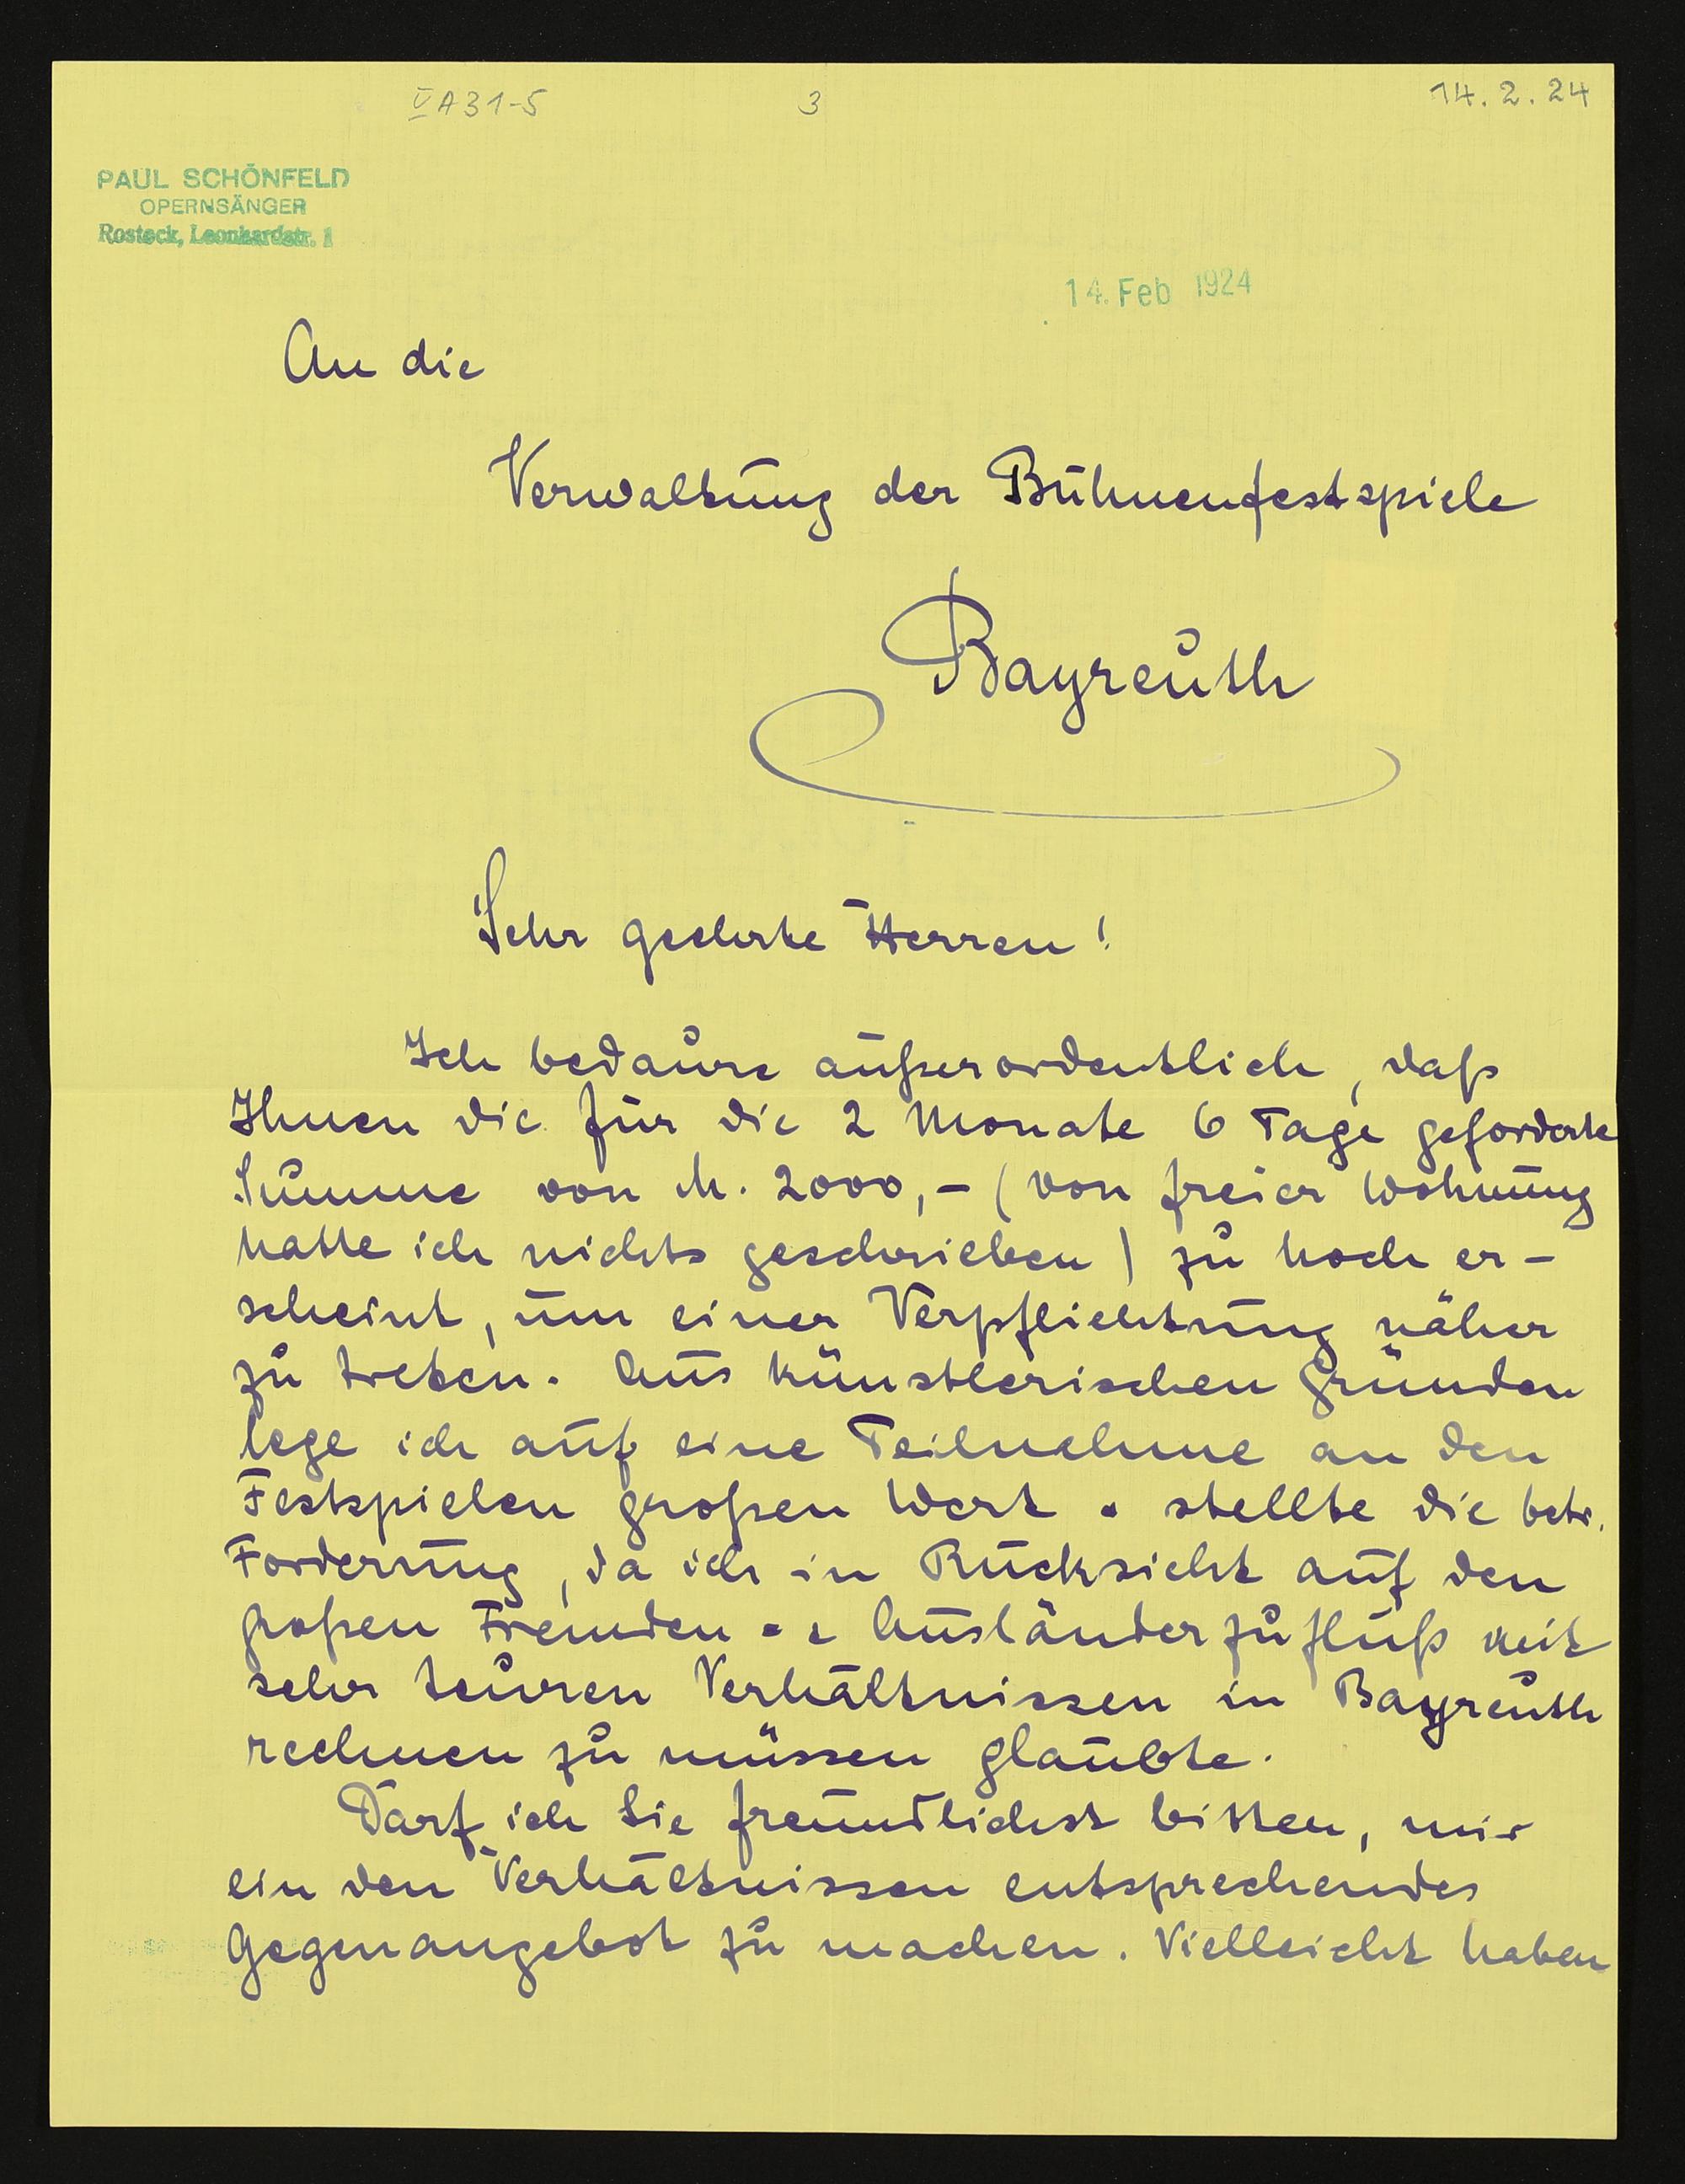 V A 31-5 3 14. 2. 24
PAUL SCHÖNFELD
OPERNSÄNGER
Rostock, Leonhardstr. 1
14. Feb 1924
An die
Verwaltung der Bühnenfestspiele
Bayreuth
Sehr geehrte Herren!
Ich bedaure außerordentlich, daß
Ihnen die für die 2 Monate 6 Tage geforderte
Summe von M. 2000,- (von freier Wohnung
hatte ich nichts geschrieben) zu hoch er-
scheint, um einer Verpflichtung näher
zu treten. Aus künstlerischen Gründen
lege ich auf eine Teilnehme an den
Festspielen großen Wert u. stellte die betr.
Forderung, da ich in Rücksicht auf den
großen Fremden- u. Ausländerzufluß mit
sehr teuren Verhältnissen in Bayreuth
rechnen zu müssen glaubte.
Darf ich Sie freundlichst bitten, mir
ein den Verhältnissen entsprechendes
Gegenangebot zu machen. Vielleicht haben